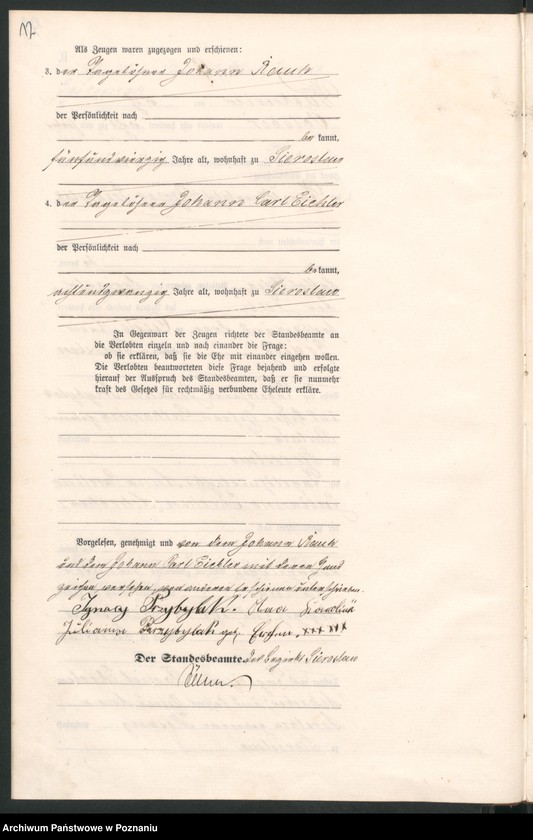 Als Zeugen waren zugezogen und erschienen:
3. der Tagelöhner Johann Rauh
der Persönlichkeit nach
bekannt,
fünfundvierzig Jahre alt, wohnhaft zu Sieroslaw
4. der Tagelöhner Johann Carl Eichler
der Persönlichkeit nach
bekannt,
achtundzwanzig Jahre alt, wohnhaft zu Sieroslaw
In Gegenwart der Zeugen richtete der Standesbeamte an
die Verlobten einzeln und nach einander die Frage:
ob sie erklären, daß sie die Ehe mit einander eingehen wollen.
Die Verlobten beantworteten diese Frage bejahend und erfolgte
hierauf der Ausspruch des Standesbeamten, daß er sie nunmehr
kraft des Gesetzes für rechtmäßig verbundene Eheleute erkläre.
Vorgelesen, genehmigt und von dem Johann Rauh
und dem Johann Carl Eichler mit deren Hand
zeichen versehen, von anderen Erschienenen unterschrieben.
Ignacy Przybylak.
Julianna Przybylak geb. xxx xxx
Der Standesbeamte. des Bezirks Sieroslaw
Archiwum Państwowe w Poznaniu